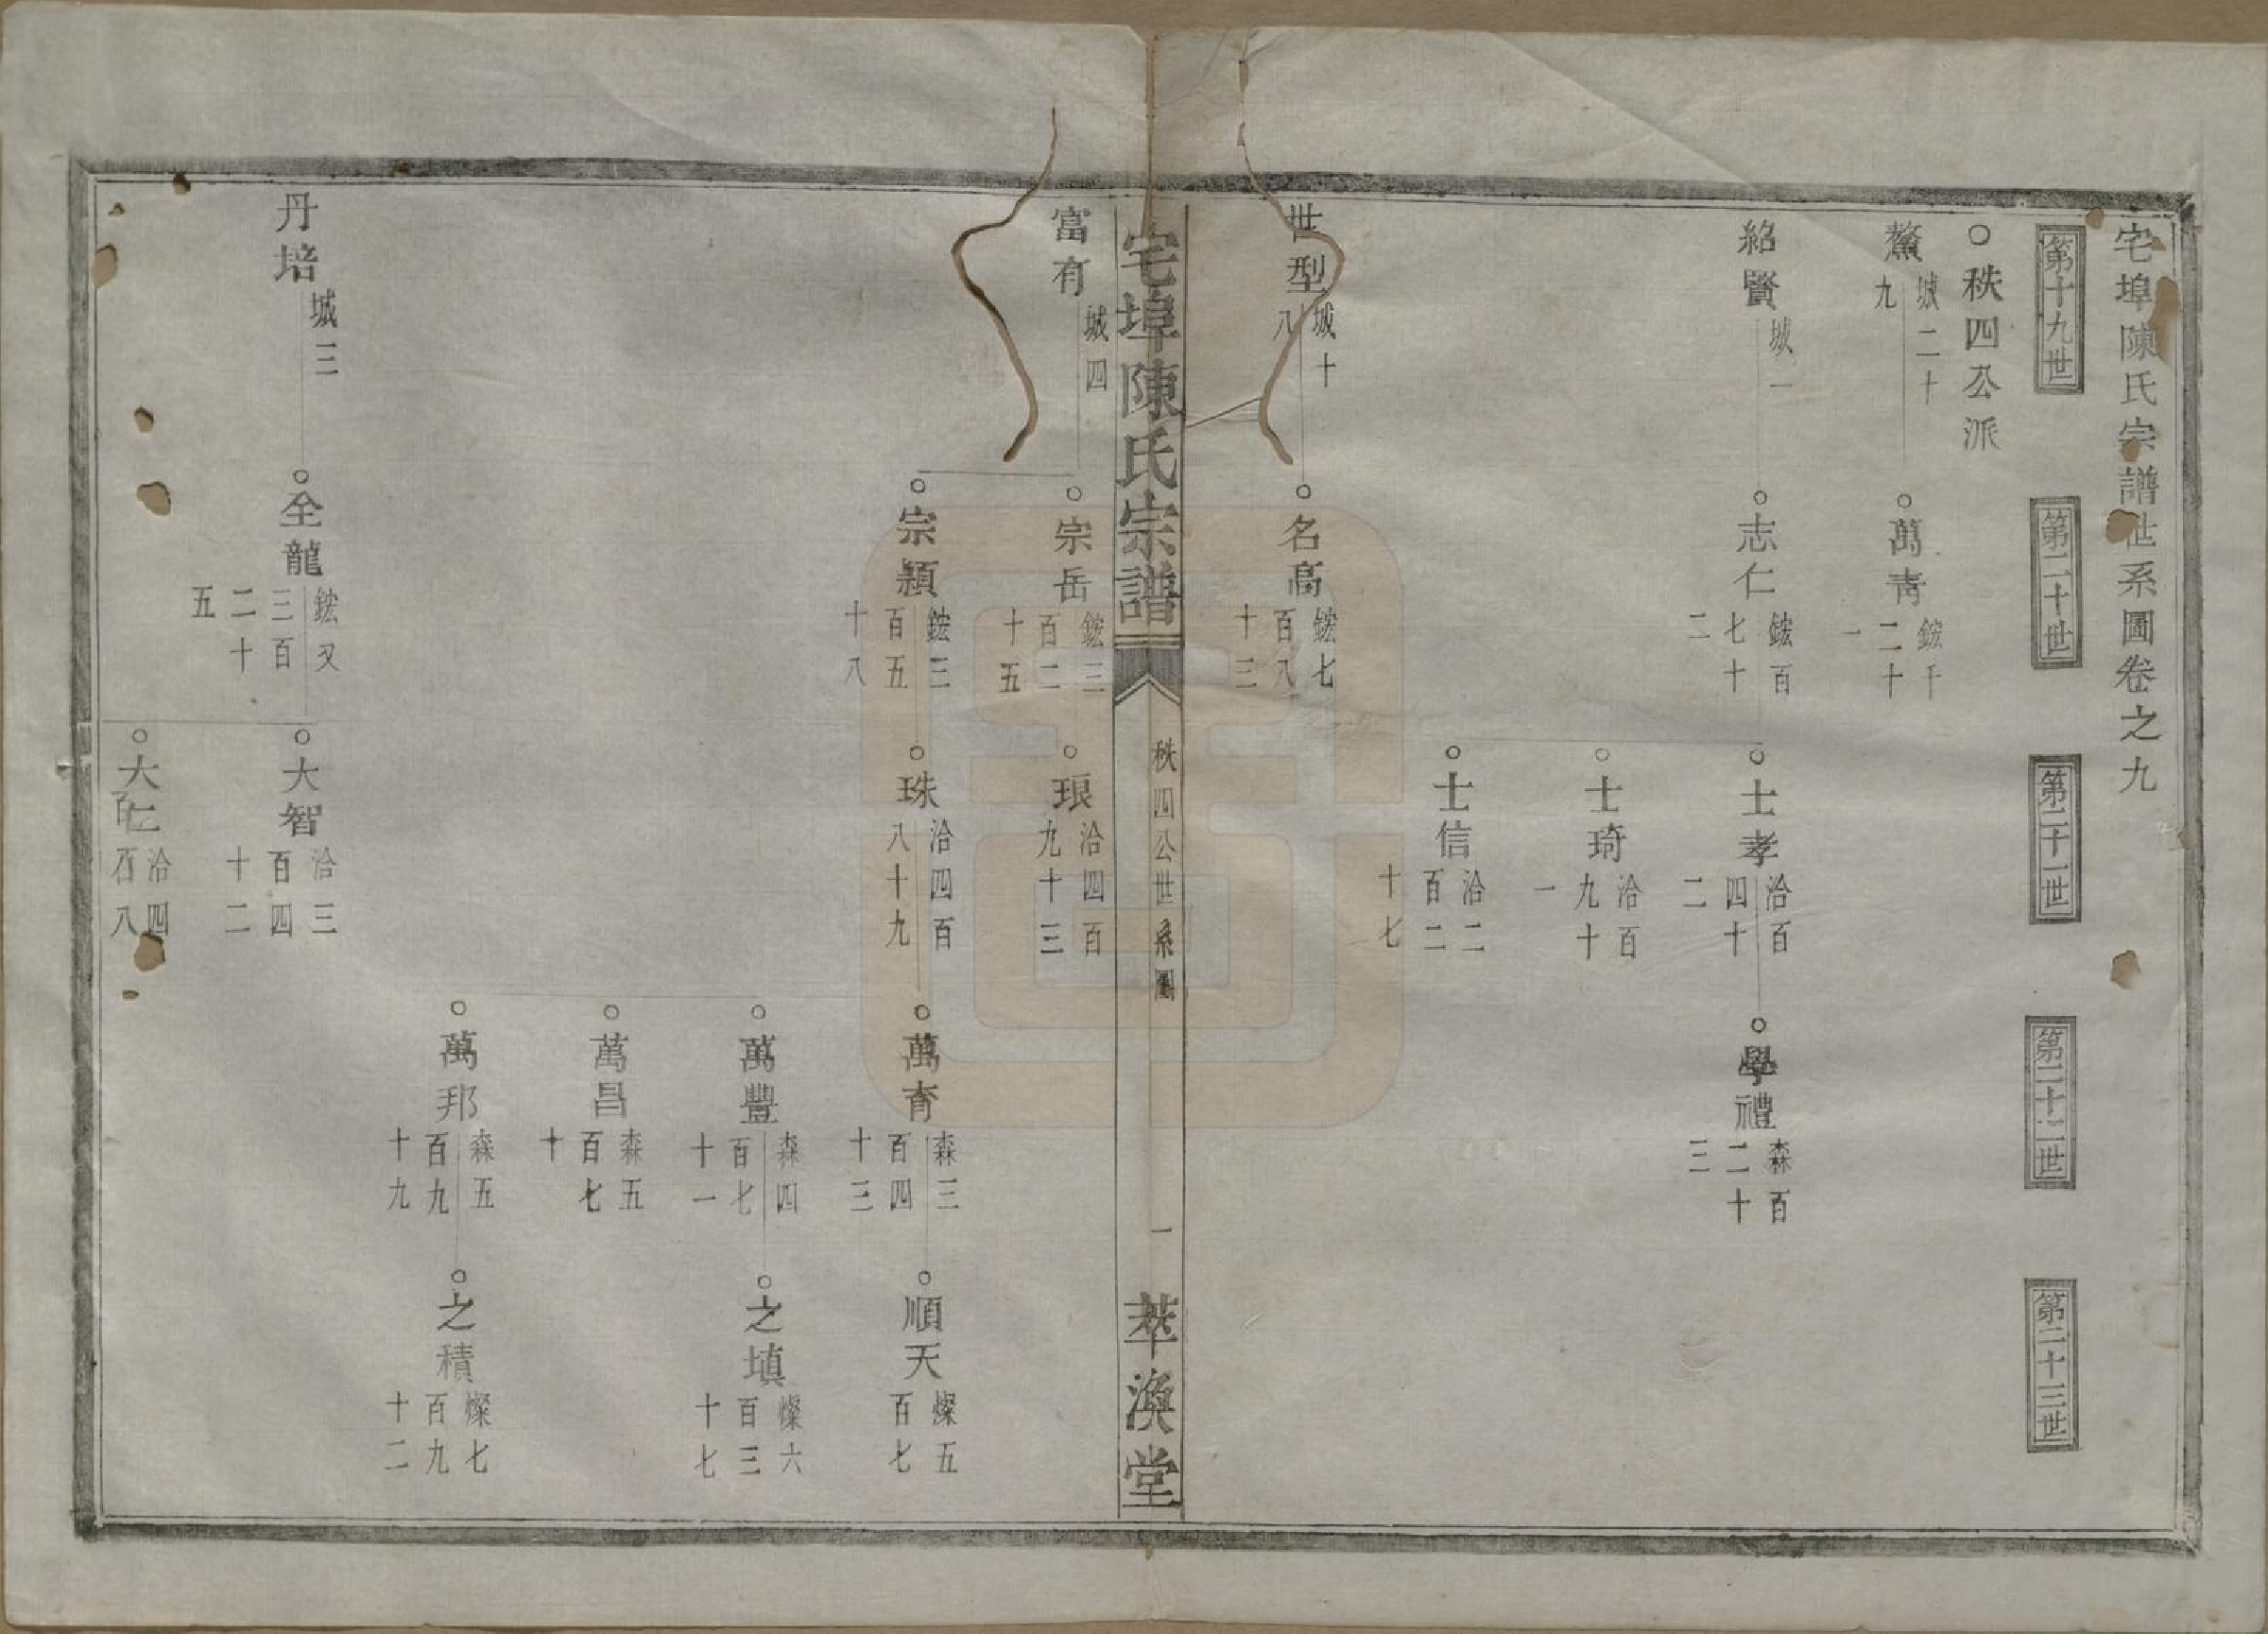 宅埠陳氏宗譜世系圖卷之九
第十九世
第二十世
第二十一世
第二十二世
第二十三世
○秩四公派
鰲 城二十九
○萬青 鋐千二十一
紹賢 城一
○志仁 鋐百七十二
○士孝 洽百四十二
○學禮 森百二十三
○士琦 洽百九十一
○士信 洽二百二十七
世型 城十八
○名高 鋐七百八十三
宅埠陳氏宗譜
秩四公世系圖
一
萃渙堂
富有 城四
○宗岳 鋐三百二十五
○琅 洽四百九十三
○宗穎 鋐三百五十八
○珠 洽四百八十九
○萬育 森三百四十三
○順天 燦五百七
○萬豐 森四百七十一
○之填 燦六百三十七
○萬昌 森五百七十
○萬邦 森五百九十九
○之積 燦七百九十二
丹培 城三
○全龍 鋐又三百二十五
○大智 洽三百四十二
○大仁 洽四百八